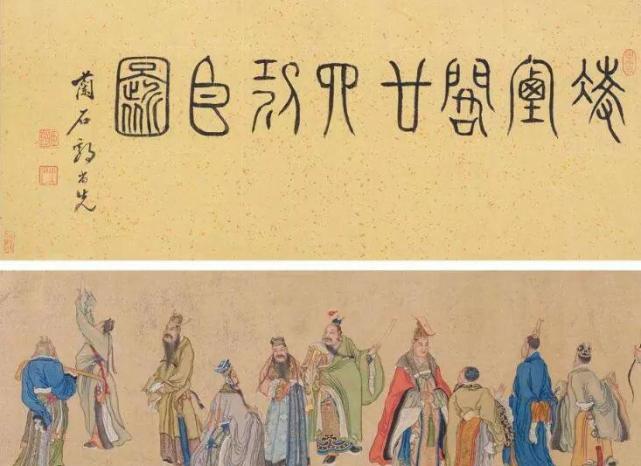 凌煙閣廿四功臣圖
蘭石郭尚先